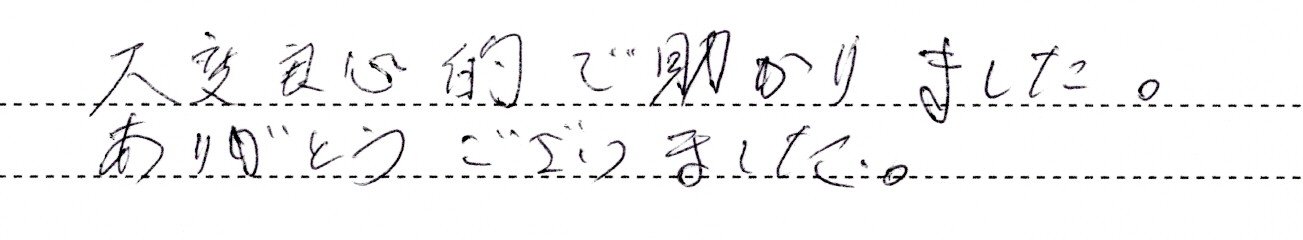 大変良心的で助かりました。
ありがとうございました。